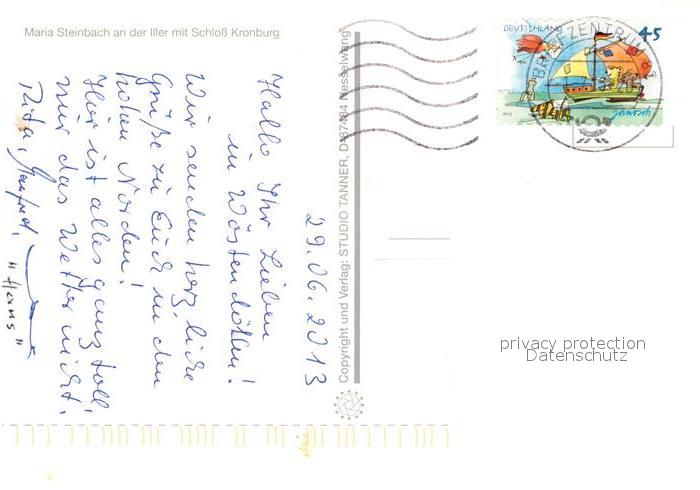 Maria Steinbach an der Iller mit Schloß Kronburg
29.06.2013
Hallo Ihr Lieben
in Wöstendöllen!
Wir senden herzliche
Grüße zu Euch in den
hohen Norden!
Hier ist alles ganz toll,
nur das Wetter nicht!
Rita, Manfred,
"Hans"
Copyright und Verlag: STUDIO TANNER, D-87484 Nesselwang
DEUTSCHLAND
45
Janosch
BRIEFZENTRUM
privacy protection
Datenschutz